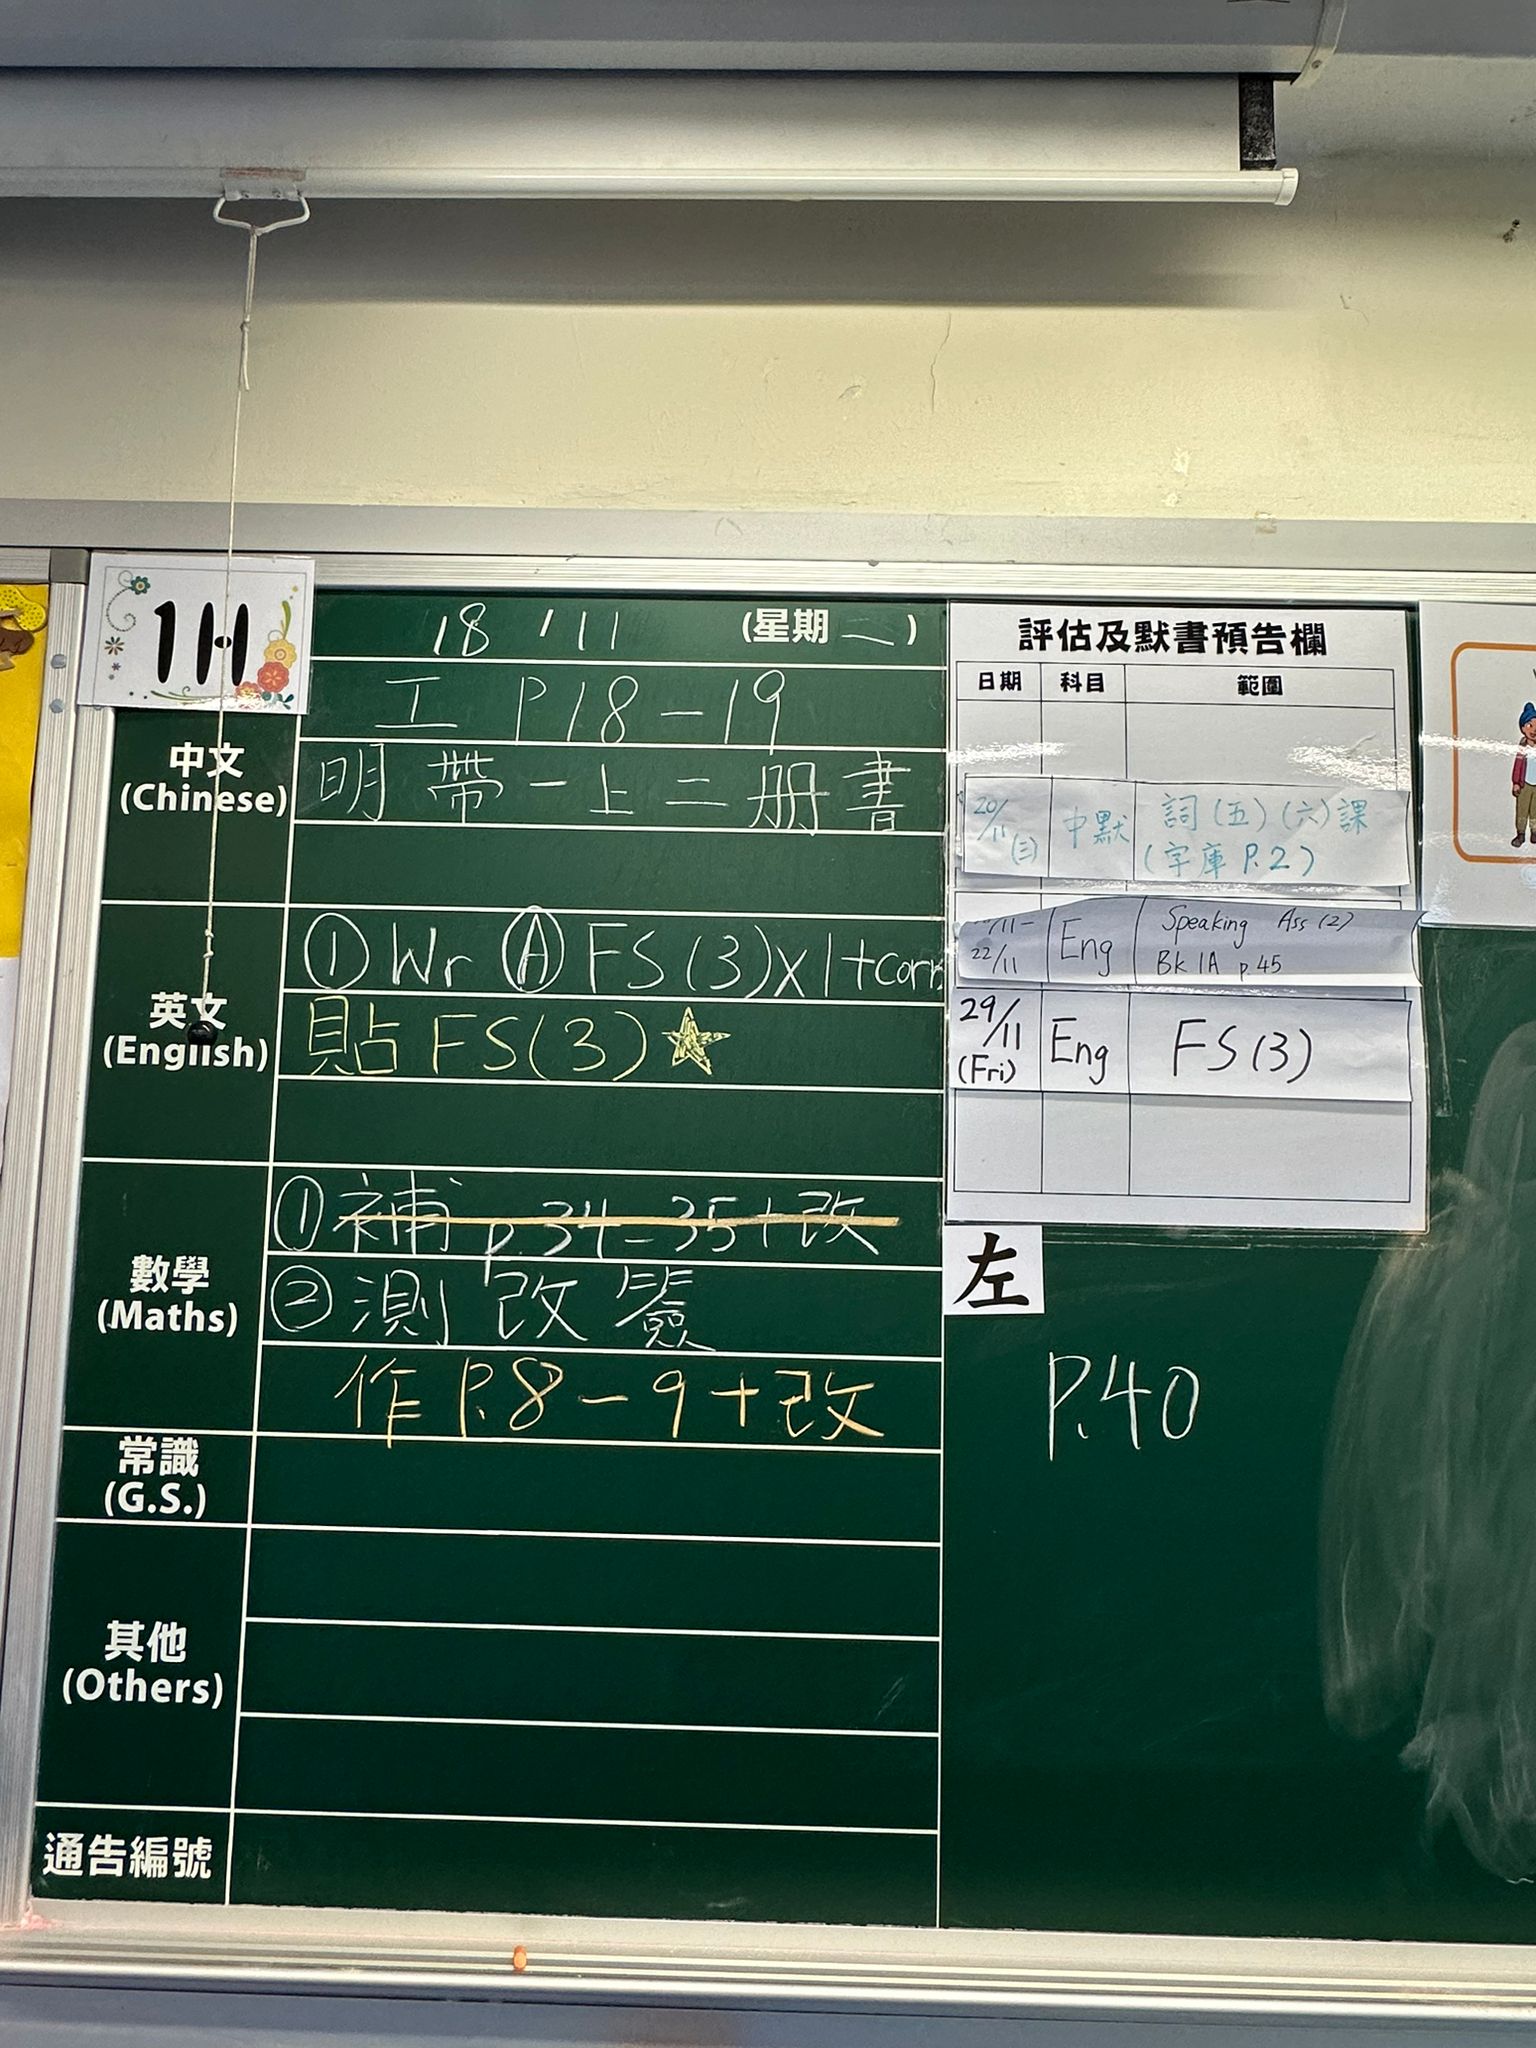 1H
18 / 11 (星期一)
中文
(Chinese)
工 P.18-19
明帶一上二册書
英文
(English)
① Wr Ⓐ FS(3)x1+corr
貼 FS(3)
數學
(Maths)
① 補 p.34-35+改
② 測 改 簽
作 P.8-9+改
常識
(G.S.)
其他
(Others)
通告編號
評估及默書預告欄
日期 科目 範圍
20/11 (三) 中默 詞(五)(六)課
(字庫 P.2)
/11- 22/11 Eng Speaking Ass (2)
Bk 1A p.45
29/11 (Fri) Eng FS(3)
左
P.40